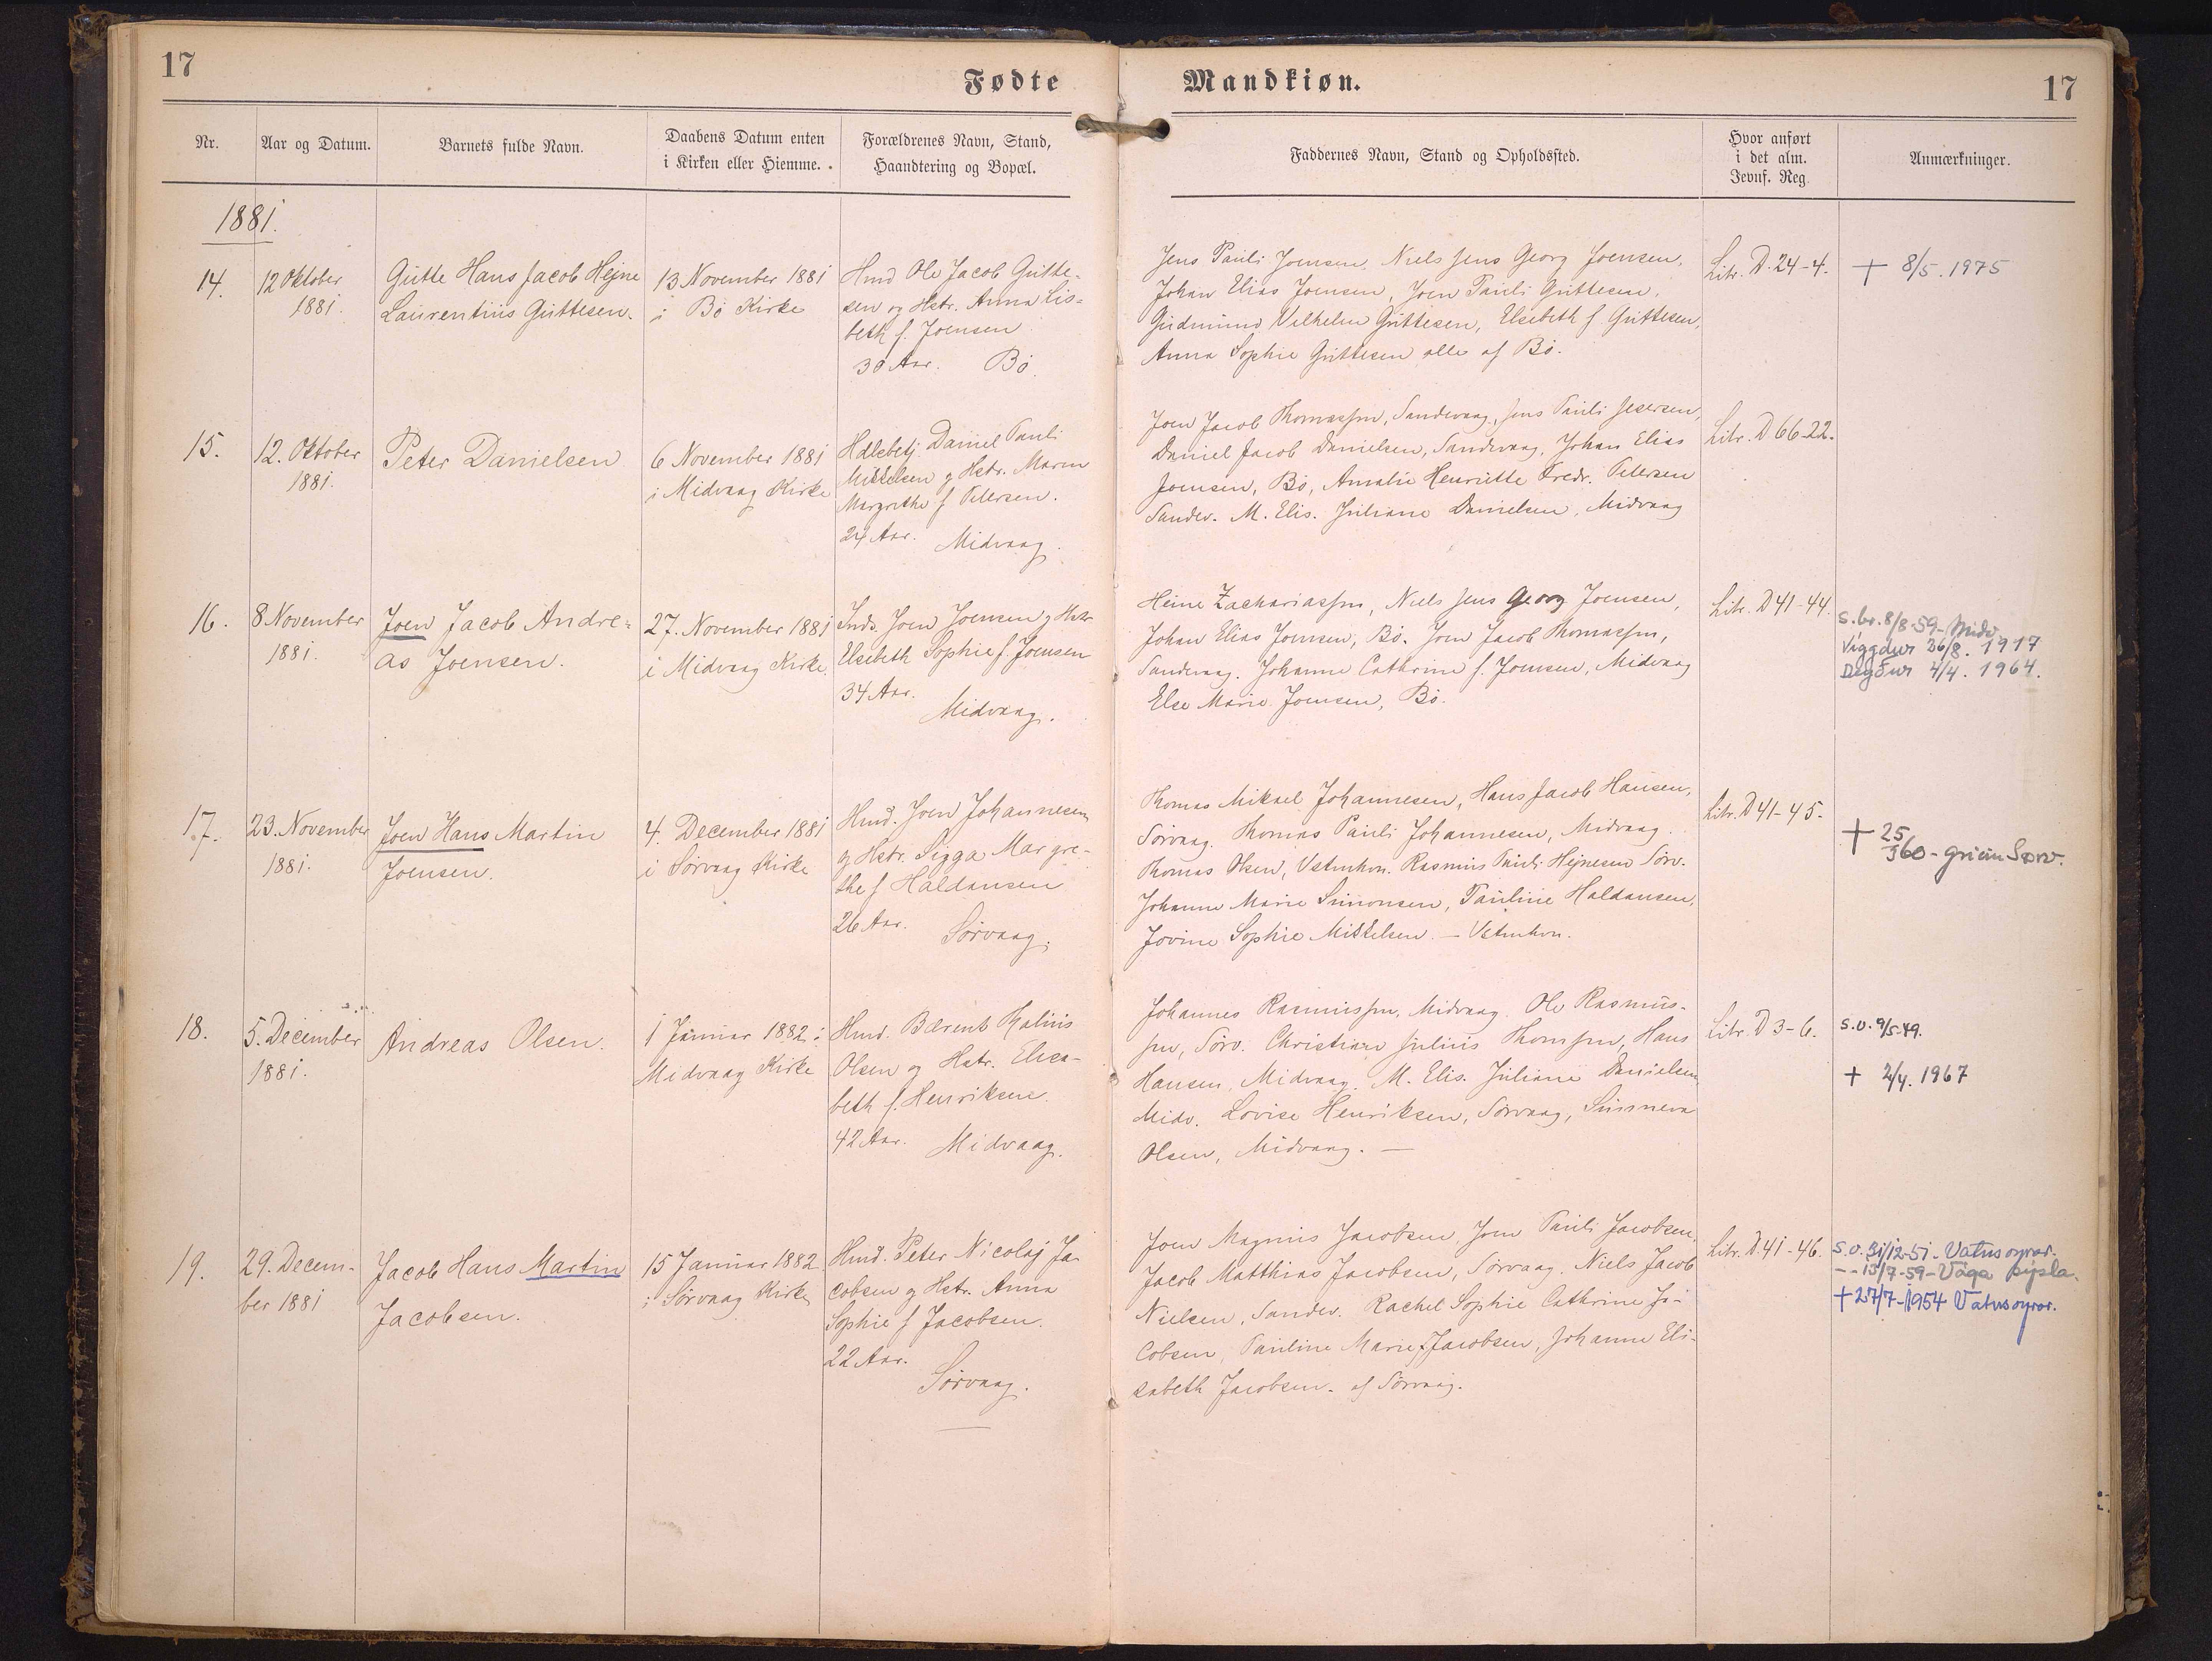 17
Fødte
Mandkiøn.
17
Nr.
Aar og Datum.
Barnets fulde Navn.
Daabens Datum enten
i Kirken eller Hiemme.
Forældrenes Navn, Stand,
Haandtering og Bopæl.
Faddernes Navn, Stand og Opholdssted.
Hvor anført
i det alm.
Jevnf. Reg.
Anmærkninger.
1881.
14.
12 Oktober
1881.
Gutte Hans Jacob Hejne
Laurentius Guttesen.
13 November 1881
i Bø Kirke
Hmd Ole Jacob Gutte-
sen og Hstr. Anna Lis-
beth f. Joensen
30 Aar. Bø
Jens Pauli Joensen, Niels Jens Georg Joensen,
Johan Elias Joensen, Joen Pauli Guttesen,
Gudmund Vilhelm Guttesen, Elsebeth f Guttesen,
Anna Sophie Guttesen alle af Bø.
Litr. D. 24-4.
+ 8/5. 1975
15.
12. Oktober
1881.
Peter Danielsen
6 November 1881
i Midvaag Kirke
Daniel Pauli
Mikkelsen og Hstr. Maren
Margrethe f Petersen.
24 Aar. Midvaag.
Joen Jacob Thomassen, Sandevaag, Jens Pauli
Daniel Jacob Danielsen, Sandevaag, Johan Elias
Joensen, Bø, Amalie Henriette Fredr. Petersen
Sandev. M. Elis. Juliane Danielsen, Midvaag
Litr. D 66-22.
16.
8 November
1881.
Joen Jacob Andre-
as Joensen.
27. November 1881
i Midvaag Kirke.
Inds. Joen Joensen og Hstr
Elsebeth Sophie f. Joensen
34 Aar.
Midvaag.
Heine Zachariassen, Niels Jens Georg Joensen,
Johan Elias Joensen, Bø. Joen Jacob Thomassen,
Sandevaag. Johanne Cathrine f. Joensen, Midvaag
Else Marie Joensen, Bø.
Litr. D 41-44.
s.br. 8/8-59-Midv.
Viggdur 26/8. 1917
Deyður 4/4. 1964.
17.
23. November
1881.
Joen Hans Martin
Joensen.
4. December 1881
i Sørvaag Kirke
Hmd. Joen Johannesen
og Hstr. Sigga Margre-
the f Haldansen
26 Aar.
Sørvaag.
Thomas Mikael Johannesen, Hans Jacob Hansen,
Sørvaag. Thomas Pauli Johannesen, Midvaag.
Thomas Olsen, Vatnhon. Rasmus Pauli Hejnesen Sørv.
Johanne Marie Simonsen, Pauline Haldansen,
Jovine Sophie Mikkelsen. - Vatnhon.
Litr. D 41-45.
+ 25
18.
5. December
1881.
Andreas Olsen.
1 Januar 1882 i
Midvaag Kirke
Hmd. Bærent Malius
Olsen og Hstr. Elisa-
beth f. Henriksen.
42 Aar. Midvaag.
Johannes Rasmussen, Midvaag. Ole Rasmus-
sen, Sørv. Christian Julius Thomsen, Hans
Hansen, Midvaag. M. Elis. Juliane Danielsen
Midv. Lovise Henriksen, Sørvaag, Sunneva
Olsen, Midvaag. -
Litr. D 3-6.
s.v. 9/5-49.
+ 2/4. 1967
19.
29. Decem-
ber 1881
Jacob Hans Martin
Jacobsen.
15 Januar 1882
i Sørvaag Kirke
Hmd. Peter Nicolaj Ja-
cobsen og Hstr. Anna
Sophie f Jacobsen.
22 Aar.
Sørvaag.
Joen Magnus Jacobsen, Joen Pauli Jacobsen,
Jacob Matthias Jacobsen, Sørvaag. Niels Jacob
Nielsen, Sandev. Rachel Sophie Cathrine Ja-
cobsen, Pauline Marie f Jacobsen, Johanne Eli-
sabeth Jacobsen. af Sørvaag.
Litr. D. 41-46.
s.v. 31/12-51-Vatnsoyrar.
-- 13/7-59-Vága sýsla.
+ 27/7-1954 Vatnsoyrar.